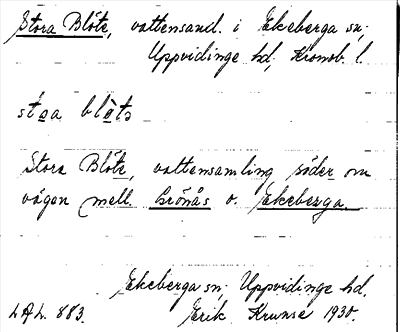 Stora Blöte, vattensaml. i Ekeberga sn;
Uppvidinge hd, Kronob. l.
stoa blöts
Stora Blöte, vattensamling söder om
vägen mell. Grönås o. Ekeberga.
Ekeberga sn, Uppvidinge hd.
LAL. 883. Erik Krunse 1930.